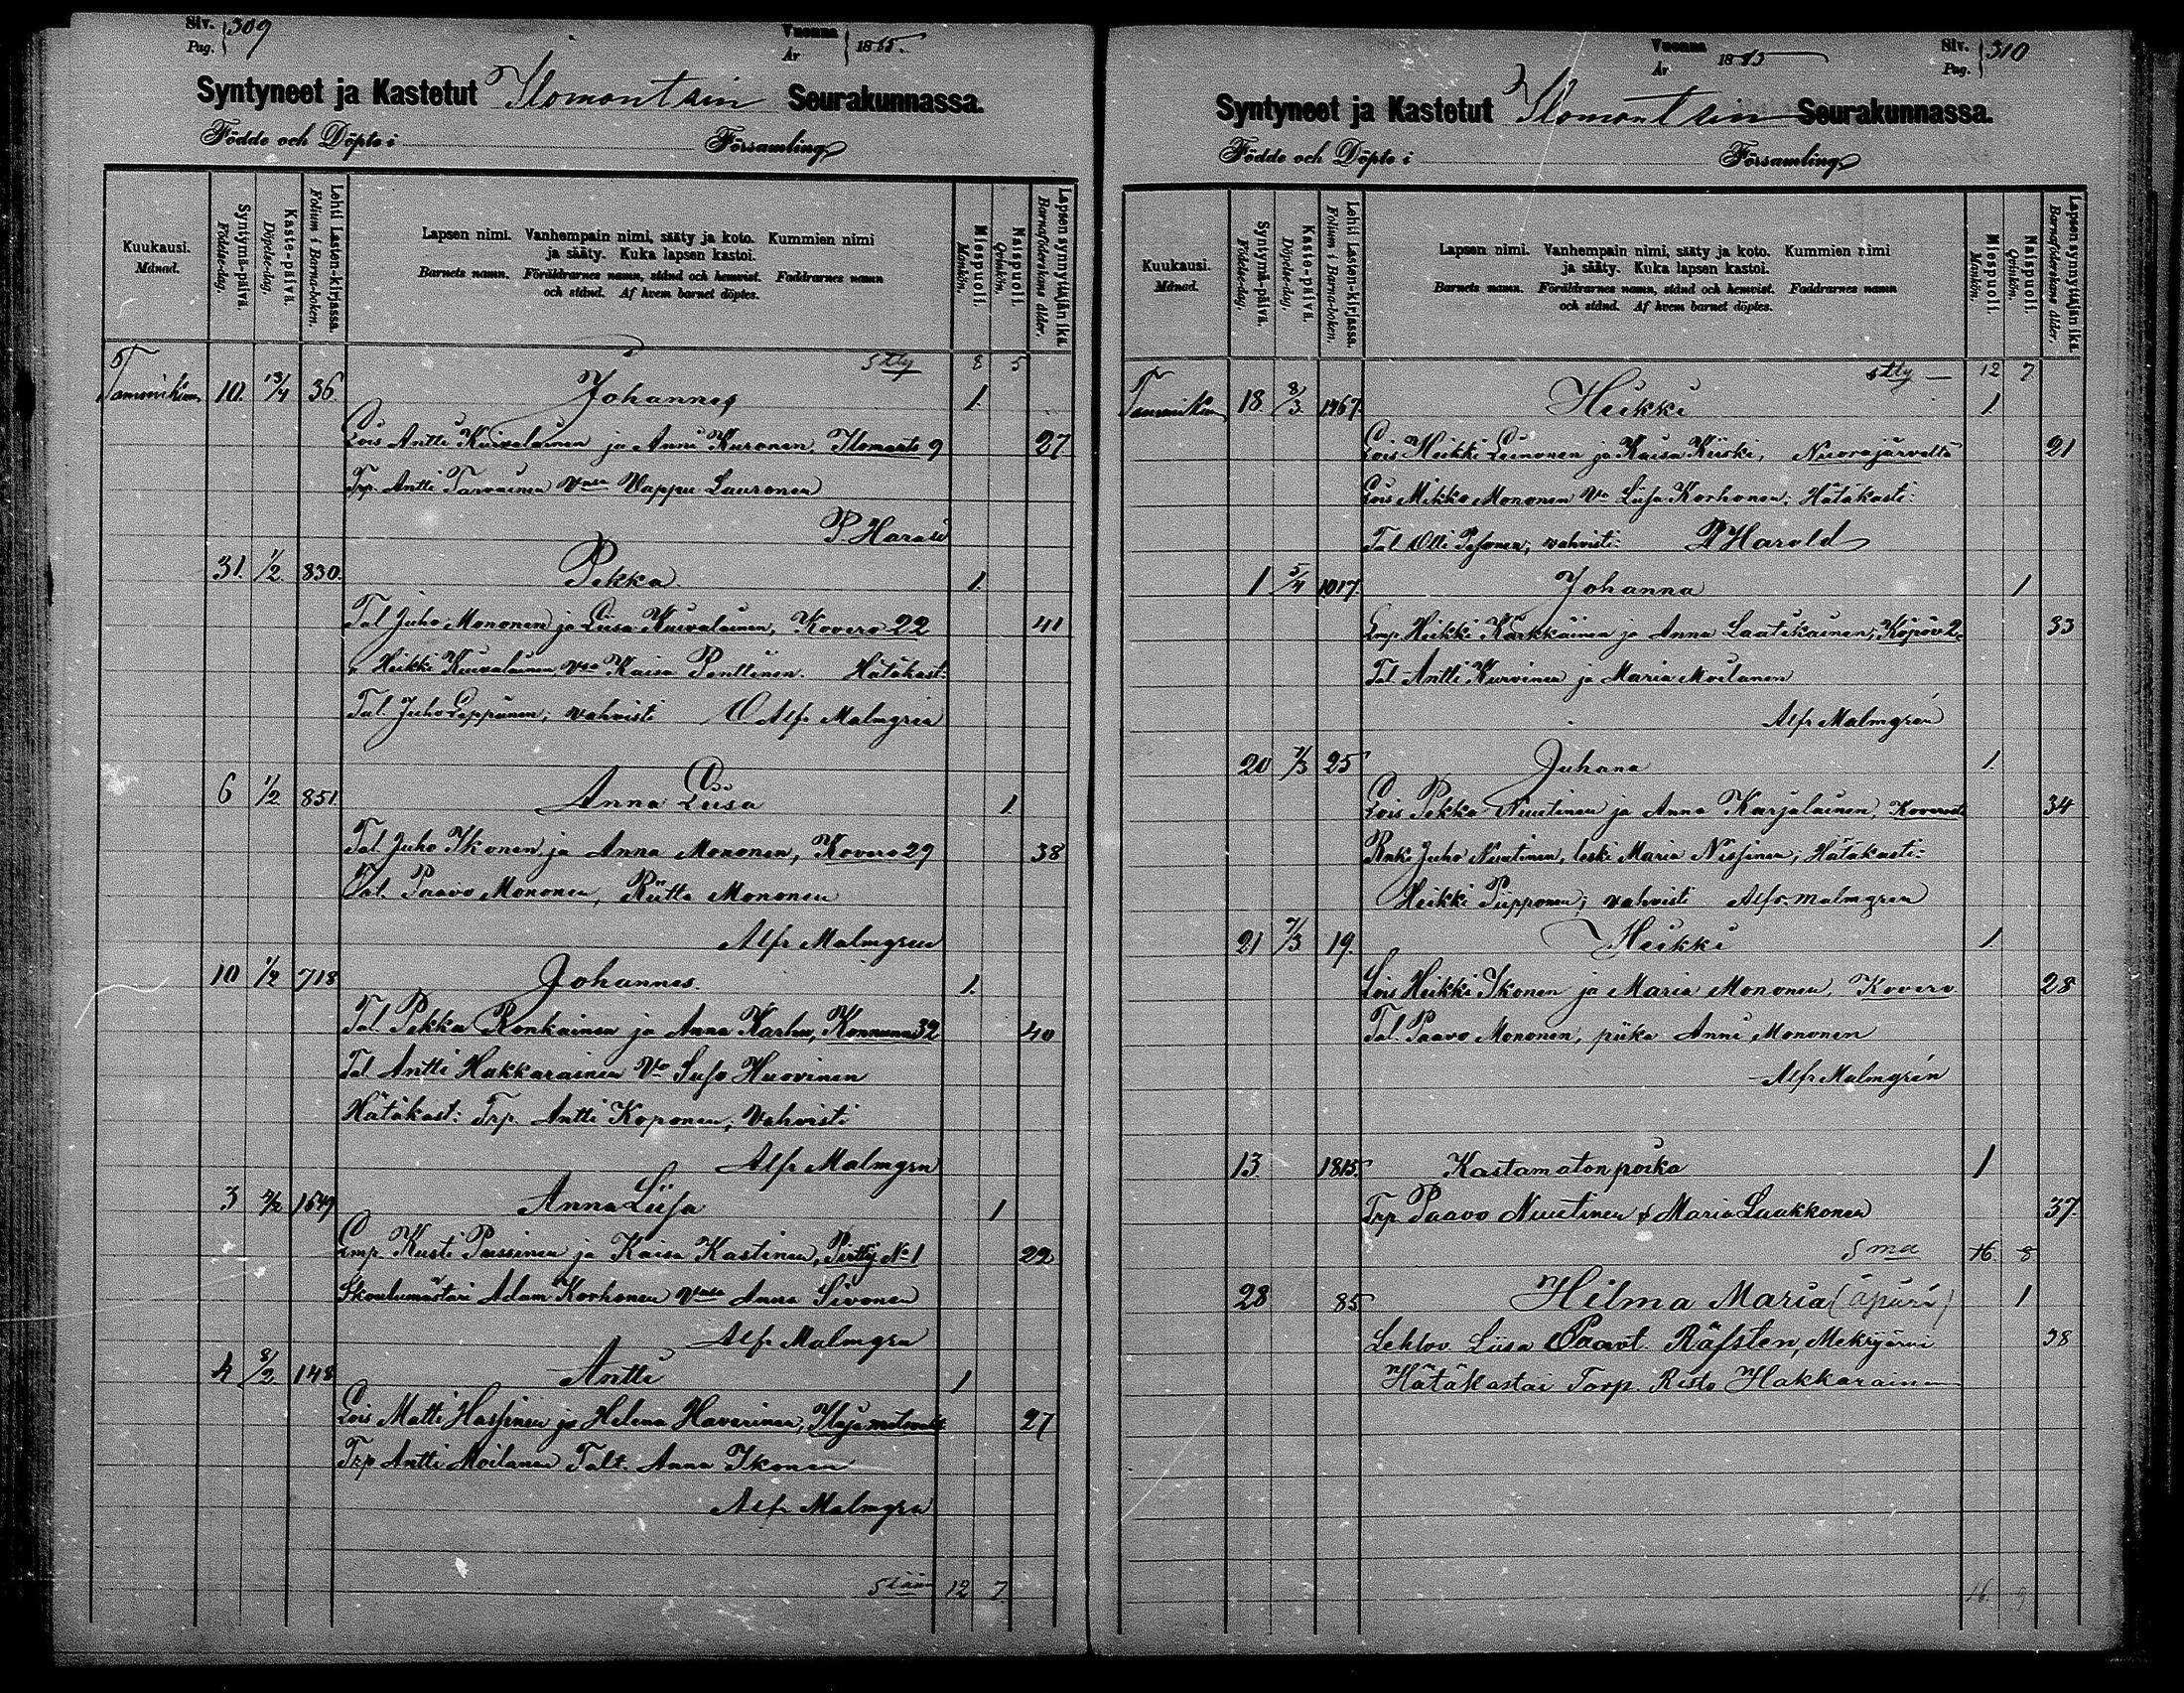 Siv. 309
Pag.
Vuonna 1885.
År
Syntyneet ja Kastetut Ilomantsin Seurakunnassa.
Födde och Döpte i Församling
Kuukausi.
Månad.
Syntymä-päivä.
Födelse-dag.
Kaste-päivä.
Döpelse-dag.
Lehti Lasten-kirjassa.
Folium i Barna-boken.
Lapsen nimi. Vanhempain nimi, sääty ja koto. Kummien nimi
ja sääty. Kuka lapsen kastoi.
Barnets namn. Föräldrarnes namn, stånd och hemvist. Faddrarnes namn
och stånd. Af hvem barnet döptes.
Miespuoli.
Mankön.
Naispuoli.
Qvinkön.
Lapsen synnyttäjän ikä.
Barnaföderskans ålder.
8 5
Tammikuu 10. 13/4 36. Johannes 1.
Lois Antti Kuivalainen ja Anni Kuronen, Ilomants 9 27
Trp. Antti Tarvainen Vnsa Vappu Lauronen
P Harald
31. 1/2 830. Pekka 1.
Tal Juho Mononen ja Liisa Kuivalainen, Kovero 22 41
Heikki Kuivalainen, Vsa Kaisa Penttinen. Hätäkast:
Tal. Juho Leppänen; vahvisti O Alfr Malmgren
6 1/2 851. Anna Liisa 1.
Tal Juho Ikonen ja Anna Mononen, Kovero 29 38
Tal. Paavo Mononen, Riitta Mononen
Alfr Malmgren
10 1/2 718 Johannes. 1.
Tal Pekka Ronkainen ja Anna Karhu, Konnunn 32 40
Tal Antti Hakkarainen Vo Sufo Huovinen
Hätäkast: Trp. Antti Koponen, vahvisti
Alfr Malmgren
3 1649 Anna Liisa 1
Lmp. Kusti Purssinen ja Kaisa Kastinen, Pirttij No 1 22
Skoulumästari Adam Korhonen Vnsa Anna Sivonen
Alfr Malmgren
4 8/2 148 Antti 1
Lois Matti Hassinen ja Helena Haverinen, 27
Trp Antti Moilanen Talt. Anna Ikonen
Alfr Malmgren
12 7
Siv. 310
Pag.
Vuonna 1885
År
Syntyneet ja Kastetut Ilomantsin Seurakunnassa.
Födde och Döpte i Församling
Kuukausi.
Månad.
Syntymä-päivä.
Födelse-dag.
Kaste-päivä.
Döpelse-dag.
Lehti Lasten-kirjassa.
Folium i Barna-boken.
Lapsen nimi. Vanhempain nimi, sääty ja koto. Kummien nimi
ja sääty. Kuka lapsen kastoi.
Barnets namn. Föräldrarnes namn, stånd och hemvist. Faddrarnes namn
och stånd. Af hvem barnet döptes.
Miespuoli.
Mankön.
Naispuoli.
Qvinkön.
Lapsen synnyttäjän ikä.
Barnaföderskans ålder.
12 7
Tammikuu 18. 8/3 1467. Heikki 1
Lois Heikki Leinonen ja Kaisa Kiiski, Nuorajärveltä 21
Lois Mikko Mononen Vo Liisa Korhonen; Hätäkasti:
Tal. Olli Pesonen; vahvisti: P Harald
1 5/4 1017. Johanna 1
Lmp. Heikki Karkkäinen ja Anna Laatikainen, 33
Tal. Antti Kurvinen ja Maria Moilanen
Alfr Malmgren
20 7/3 25 Juhana 1
Lois Pekka Nuutinen ja Anna Karjalainen, Koverosta 34
Renki Juho Nuutinen, leski Maria Nissinen; Hätäkasti:
Heikki Piipponen; vahvisti Alfr. Malmgren
21 7/3 19. Heikki 1
Lois Heikki Ikonen ja Maria Mononen, Kovero 28
Tal. Paavo Mononen, piika Anni Mononen
Alfr Malmgrén
13. 1815. Kastamaton poika 1
Trp. Paavo Nuutinen & Maria Laakkonen 37.
Sma 16. 8
28 85 Hilma Maria (äpärä) 1
Lehlov. Liisa Paavot. Räfsten, Mekrijärvi 38
Hätäkastai Torp. Risto Hakkarainen
16. 9